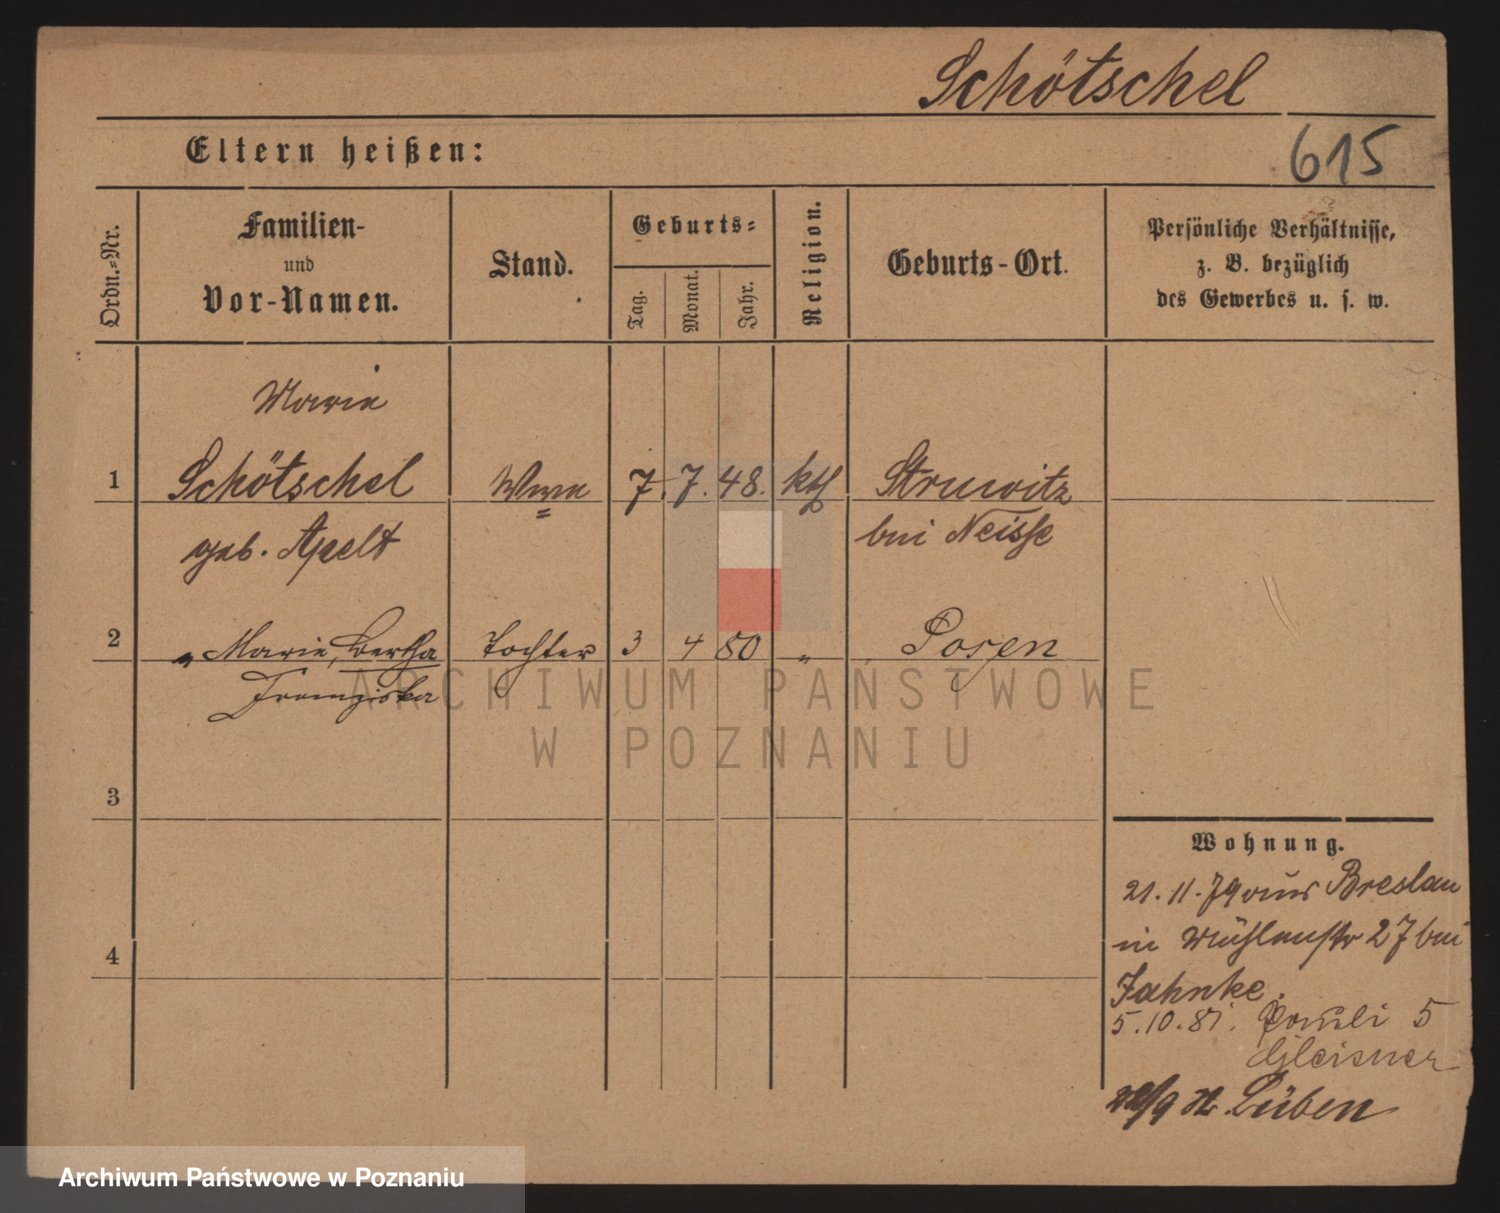 Schötschel
615
Eltern heißen:
Ordn.-Nr.
Familien-
und
Vor-Namen.
Stand.
Geburts-
Tag.
Monat.
Jahr.
Religion.
Geburts-Ort.
Persönliche Verhältnisse,
z. B. bezüglich
des Gewerbes u. s. w.
Marie
1 Schötschel 7. 7. 48. kth Struwitz
geb. Apelt bei Neisse
2 " Marie, Bertha Tochter 3 4 80 " Posen
Franziska
ARCHIWUM PAŃSTWOWE
W POZNANIU
3
Wohnung.
21.11.79 aus Breslau
in Mühlenstr 27 bei
4
Jahnke.
5.10.81. Pauli 5
Gleisner
Lüben
Archiwum Państwowe w Poznaniu